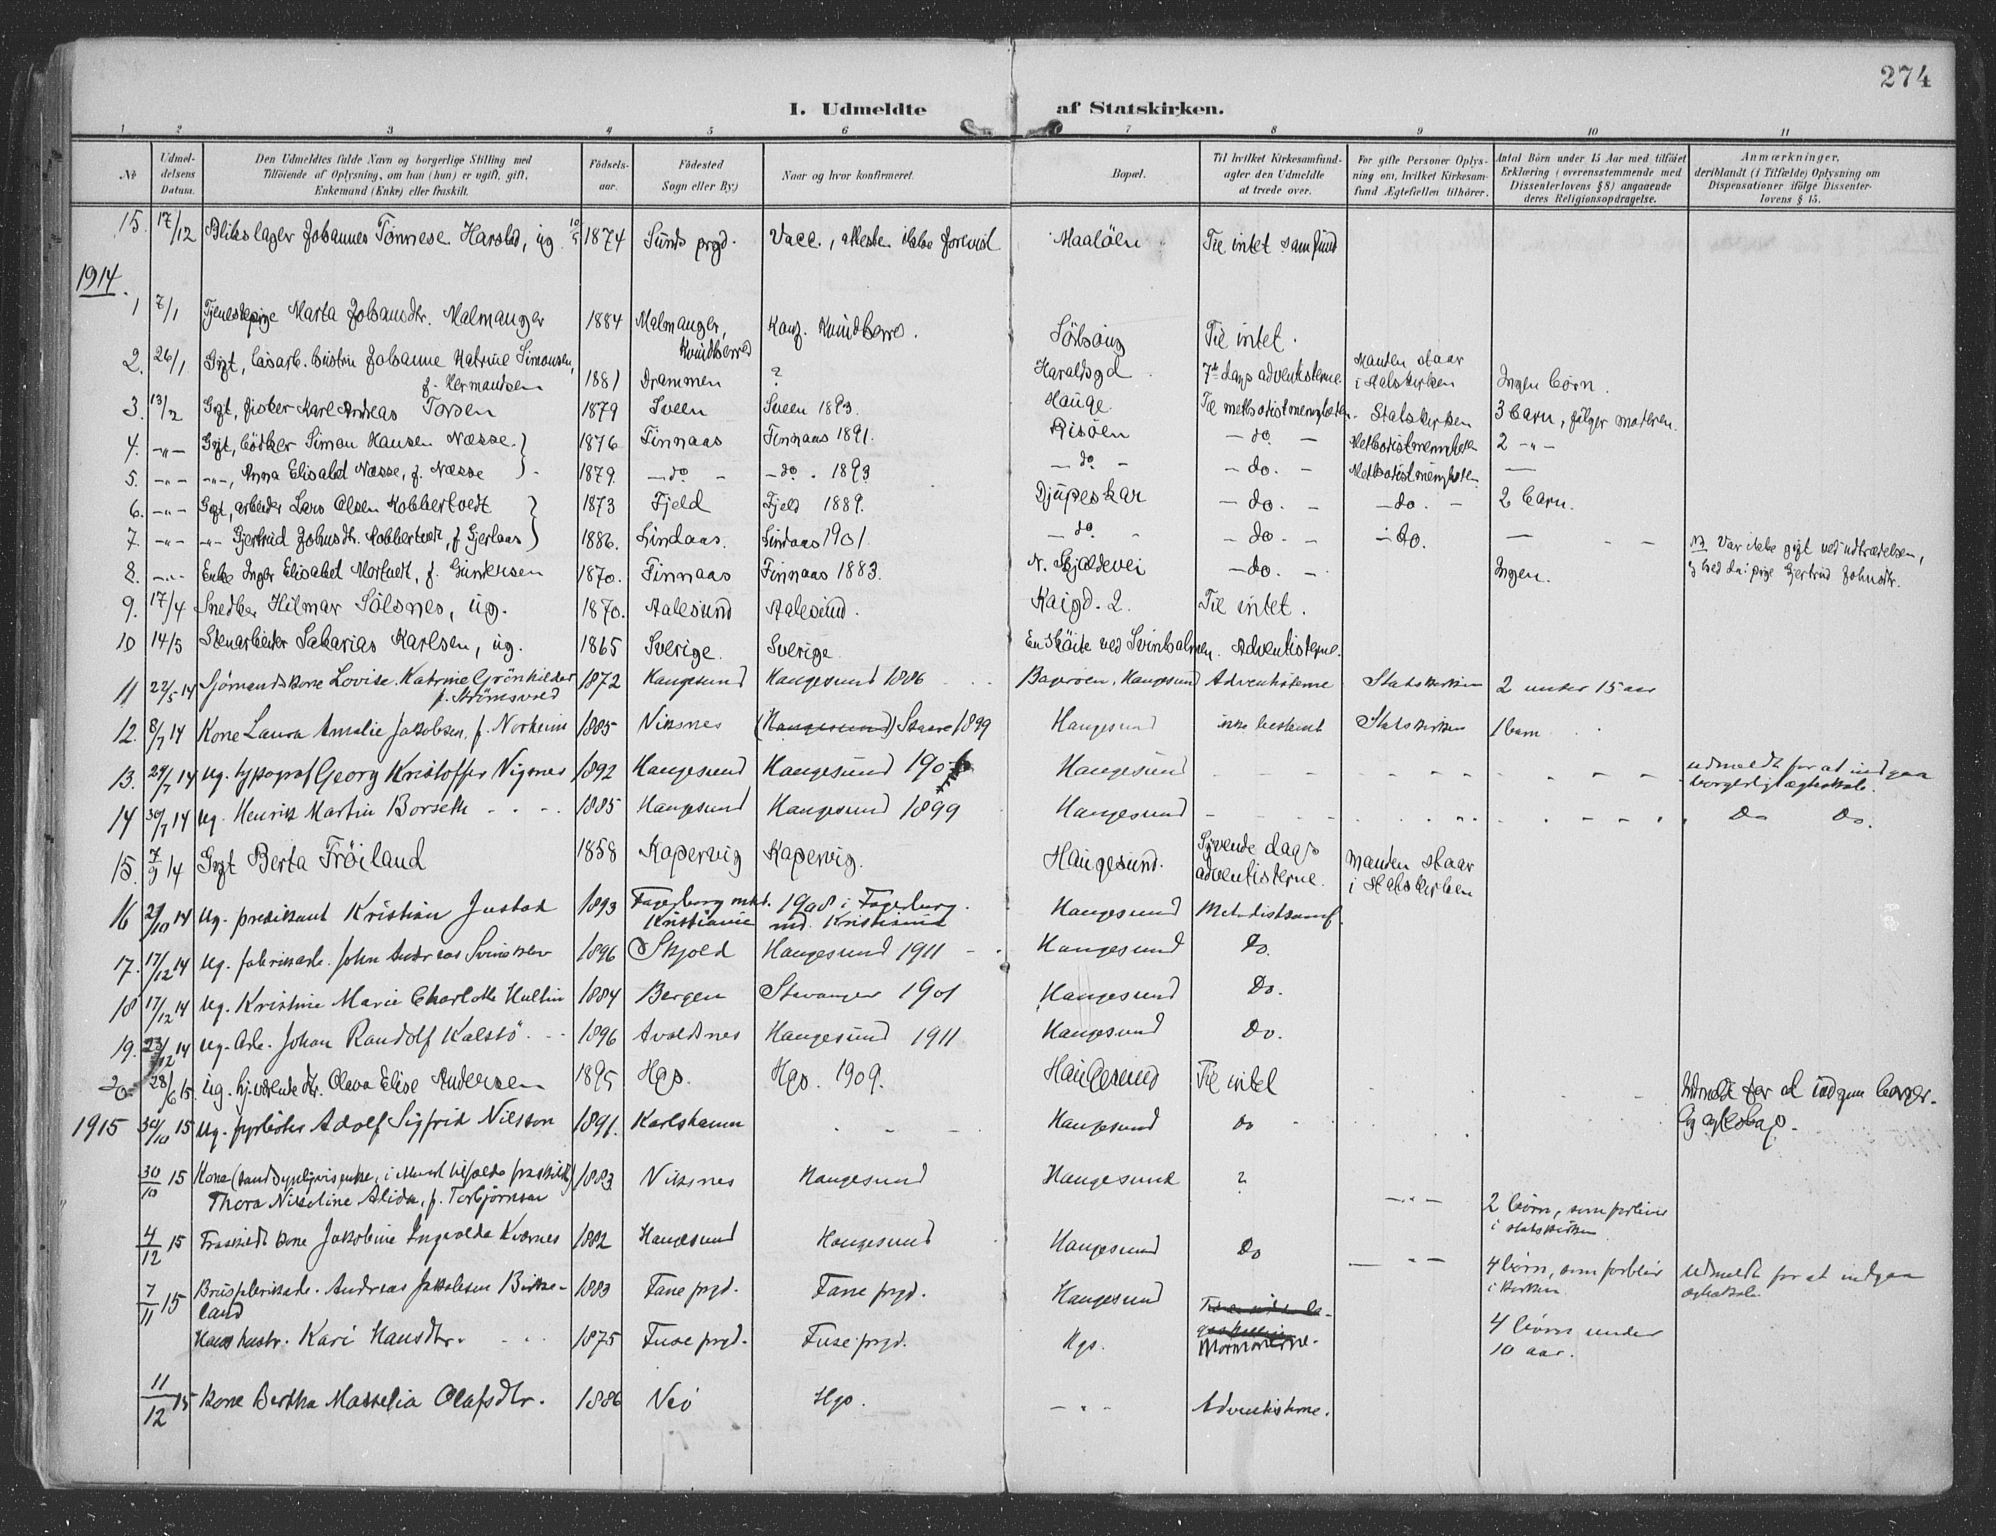 274
I. Udmeldte af Statskirken.
1 2 3 4 5 6 7 8 9 10 11
No
Udmeldelsens Datum.
Den Udmeldtes fulde Navn og borgerlige Stilling med
Tilføiende af Oplysning, om han (hun) er ugift, gift,
Enkemand (Enke) eller fraskilt.
Fødselsaar.
Fødested
Sogn eller By.)
Naar og hvor konfirmeret.
Bopæl.
Til hvilket Kirkesamfund agter den Udmeldte at træde over.
For gifte Personer Oplysning om, hvilket Kirkesamfund Ægtefællen tilhører.
Antal Børn under 15 Aar med tilføiet
Erklæring (overensstemmende med
Dissenterlovens § 8) angaaende
deres Religionsopdragelse.
Anmærkninger,
deriblandt (i Tilfælde) Oplysning om
Dispensationer ifølge Dissenterlovens § 15.
15. 17/12 Blikslager Johannes Tönnese Harstad, ug. 1874 Sunds prgd. Vacc., attest ikke forevist Maalöen Til intet samfund
1914.
1 7/1 Tjenestepige Marta Johansdtr. Malmanger 1884 Malmanger, Kvindherred Konf. Kvindherre. Sörhaug Til intet.
2. 26/1 Gift, Johanne Katrine Simonsen, f. Hermandsen 1881 Drammen ? Haraldsgd 7de dags adventisterne Manden staar i statskirken Ingen børn.
3. 13/2 Gift, fisker Karl Andreas Torsen 1879 Sveen Sveen 1893. Hauge Til methodistmenigheten. Statskirken 3 barn, følger moderen.
4. -"- Gift, bödker Simon Hansen Næsse. 1876 Finnaas Finnaas 1891. Risöen - do. - Methodistmenigheten 2 -"-
5. -"- -"-, Anna Elisabet Næsse, f. Næsse 1879. - do - - do. 1893 - do - - do. - Methodistmenigheten -
6. -"- Gift, arbeider Lars Olsen Kobbertvedt 1873 Fjeld Fjeld 1889. Djupeskar - do. - - do. - 2 barn.
7. -"- -"- Gjertrud Johnsdtr. Kobbertvedt, f. Gjerlaas 1886. Lindaas. Lindaas 1901. - do - - do - - do. - NB Var ikke gift ved udtrædelsen, pige Gjertrud Johnsdtr.
8. -"- Enke Inger Elisabet Mortvedt, f. Gundersen 1870. Finnaas Finnaas 1883. N. Skjoldevei - do. - Ingen.
9. 17/4 Snedker Hilmar Sölsnes, ug. 1870. Aalesund Aalesund. Kaigd. 2. Til intet.
10 14/5 Stenarbeider Sakarias Karlsen, ug. 1865 Sverige. Sverige. En skøite ved Svinholmen. Adventisterne.
11 22/5 14 Sjömandskone Lovise Katrine Grönhilder f. Strömsvold 1872 Haugesund Haugesund 1886 Haugesund Adventisterne Statskirken 2 under 15 aar
12. 8/7 14 Kone Laura Amalie Jakobsen, f. Norheim 1885 (Haugesund) Skaare 1899 Haugesund ikke bestemt Statskirken 1 barn
13. 24/7 14 Ug. typograf Georg Kristoffer Vignes 1892 Haugesund Haugesund 190 Haugesund udmeldt for at indgaa borgerlig ægteskab.
14 30/7 14 Ug. Henrik Martin Borseth 1885 Haugesund Haugesund 1899 Haugesund Do Do.
15. 7/9 14 Gift Berta Fröiland 1858 Kopervig Kopervig. Haugesund. Syvende dags adventisterne. Manden staar i Statskirken
16 21/10 14 Ug. predikant Kristian Justad 1893 Fagerborg mht. Kristiania 1908 i Fagerborg. md. Kristiania Haugesund Metodistsamf.
17. 17/12 14 Ug. fabrikarb. John Andreas 1896 Skjold Haugesund 1911 Haugesund Do.
18 17/12 14 Ug. Kristine Marie Charlotte Hultin 1884 Bergen Stavanger 1901 Haugesund Do.
19. 23/12 14 Ug. Arb. Johan Randolf Kalstö 1896 Avaldsnes Haugesund 1911 Haugesund Do.
20 28/6 15. Ug. hj.værende dtr. Olava Elise Andersen 1895 Hgs. Hgs. 1909. Haugesund Til intet Udmeldt for at indgaa borgerlig ægteskap.
1915 30/10 15 Ug. fyrböter Adolf Sigfrid Nilsson 1891. Karlshamn Haugesund do
30/10 15 Kone (sandsynligvis enke, i modsat tilfælde fraskilt) Thora Nikoline Alida, f. Torbjörnsen 1883 Haugesund Haugesund ? -"- 2 börn, som forblir i statskirken
4/12 15 Fraskildt kone Jakobine Ingvalda Kværnes 1882 Haugesund Haugesund Haugesund Do -"- 4 börn, som forblir i kirken. Udmeldt for at indgaa ægteskab.
7/11 15 Brusfabrikarb. Andreas Jakobsen Birkeland 1883 Fane prgd. Fane prgd. Haugesund
Haushustr. Kari Hansdtr. 1875 Fuse prgd. Fuse prgd. Hgs. Mormonerne. 4 börn under 10 aar.
11/12 15 Kone Bertha Olafsdtr. 1886 Hgs. -"- Adventisterne.